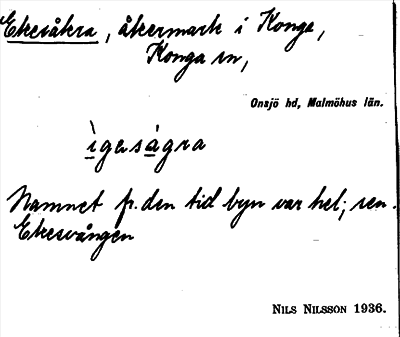 Ekesåkra, åkermark i Konga,
Konga sn,
Onsjö hd, Malmöhus län.
ìgəsågra
Namnet fr. den tid byn var hel; sen.
Ekesvången
NILS NILSSON 1936.